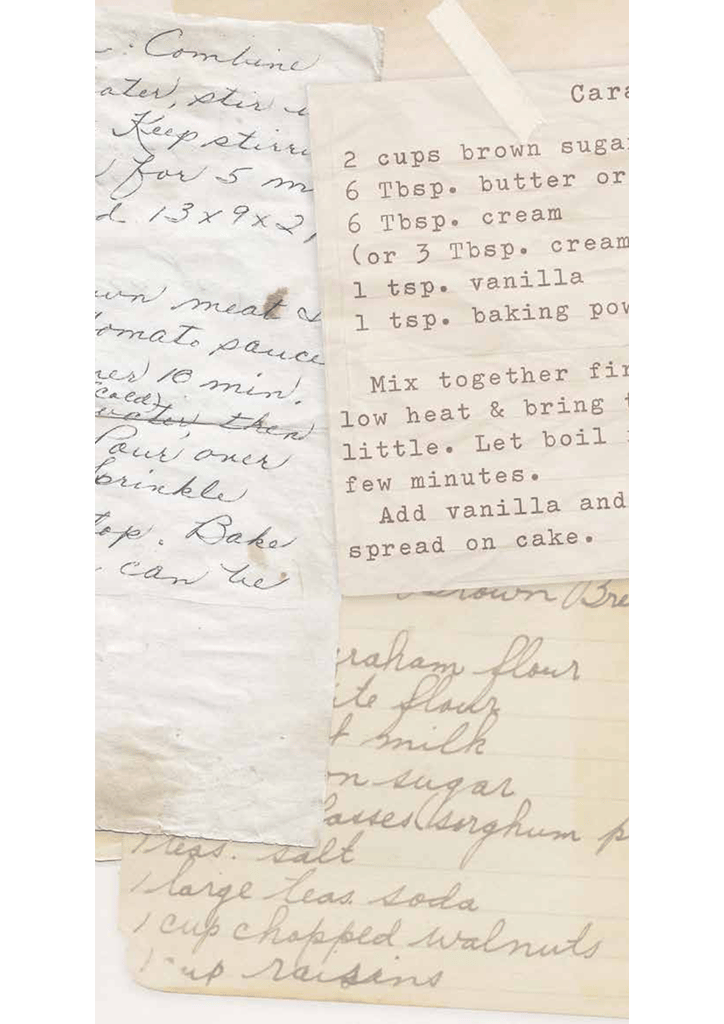 : Combine
ater, stir
Keep stirr
for 5 m
d 13 x 9 x 2,
wn meat &
tomato sauce
mer 10 min.
(cold)
water, then
Pour over
prinkle
top. Bake
can be
Cara
2 cups brown sugar
6 Tbsp. butter or
6 Tbsp. cream
(or 3 Tbsp. cream
1 tsp. vanilla
1 tsp. baking pow
Mix together fir
low heat & bring t
little. Let boil
few minutes.
Add vanilla and
spread on cake.
Brown Bre
raham flour
ite flour
t milk
on sugar
lasses (sorghum p
1 teas. salt
1 large teas. soda
1 cup chopped walnuts
1 cup raisins